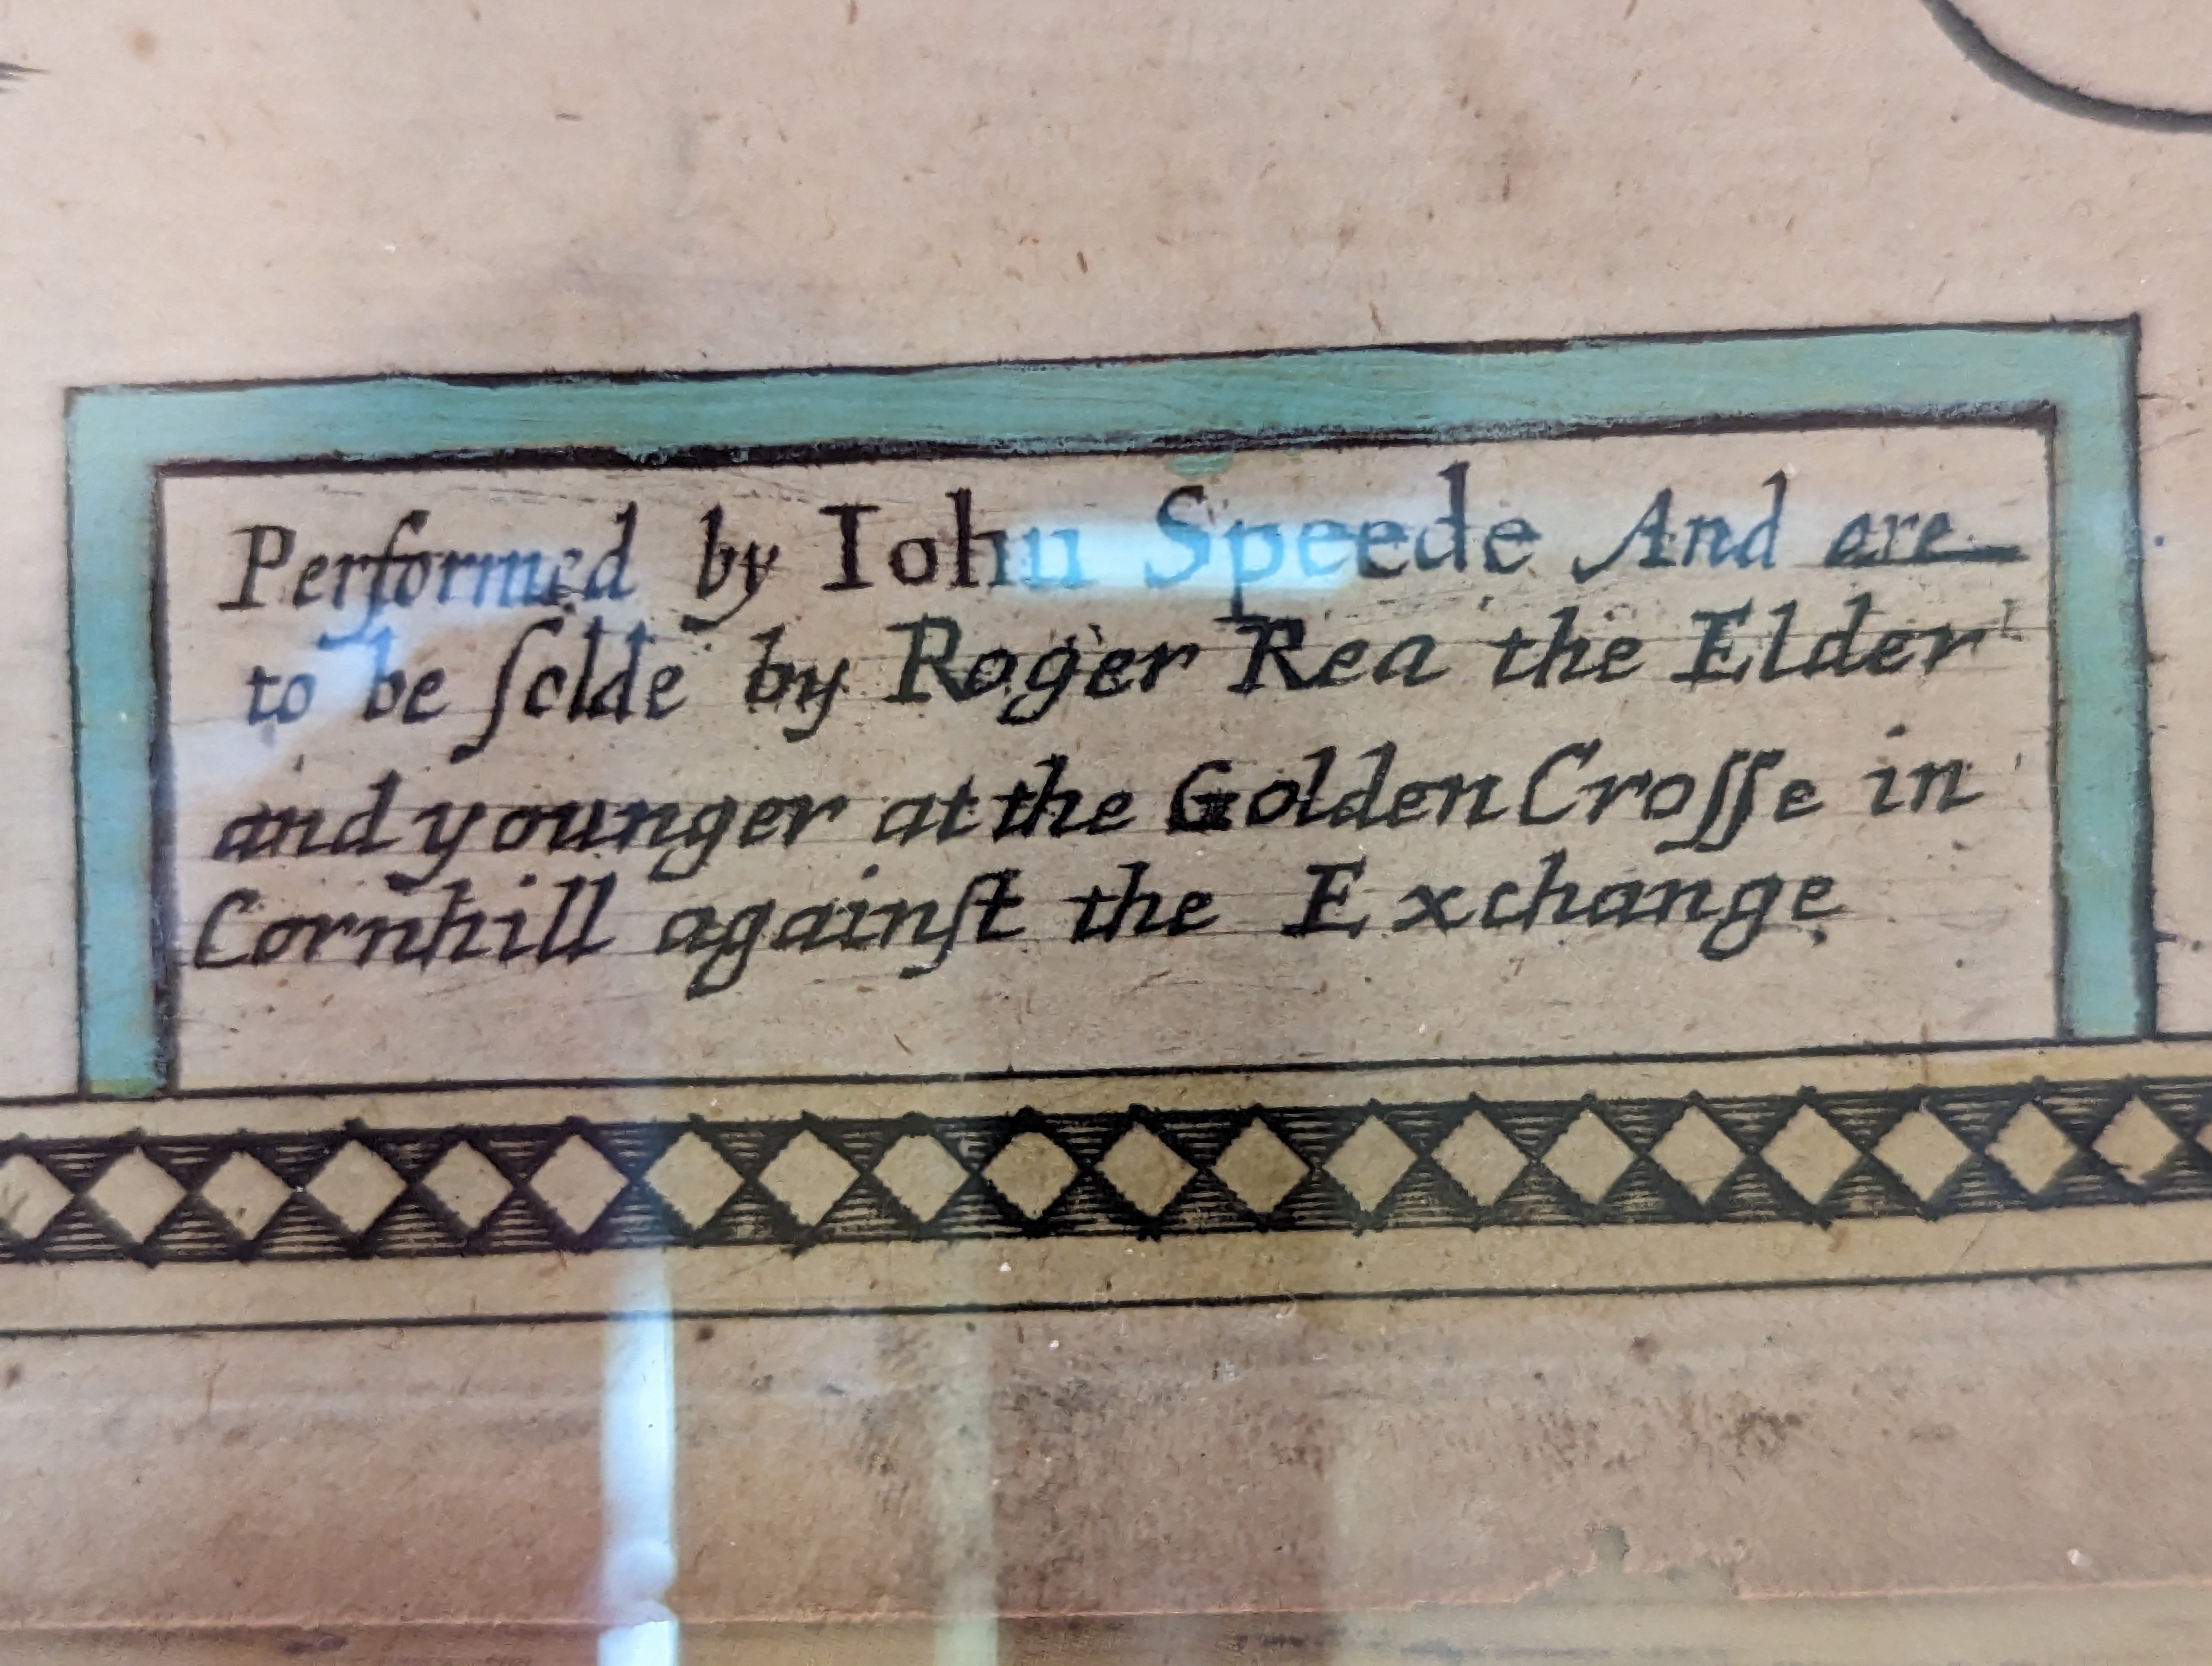 Performed by Iohn Speede And are
to be ſolde by Roger Rea the Elder
and younger at the Golden Croſſe in
Cornhill againſt the Exchange